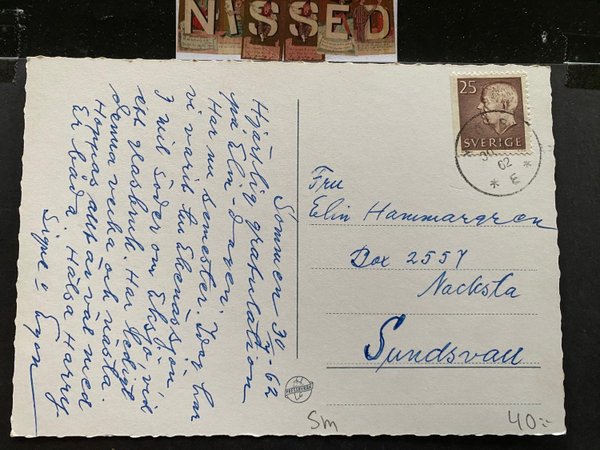 NISSED
Sommen 30/7 62
Hjärtlig gratulation
på Elin-dagen.
Har nu semester. Idag har
vi varit
1 mil söder om Eksjö, vid
ett glasbruk. Har ledigt
denna vecka och nästa.
Hoppas allt är väl med
Er båda. Hälsa Harry
Signe o Egon
25
SVERIGE
30
62
* E *
Fru
Elin Hammargren
Box 2557
Nacksta
Sundsvall
Sm
40:-